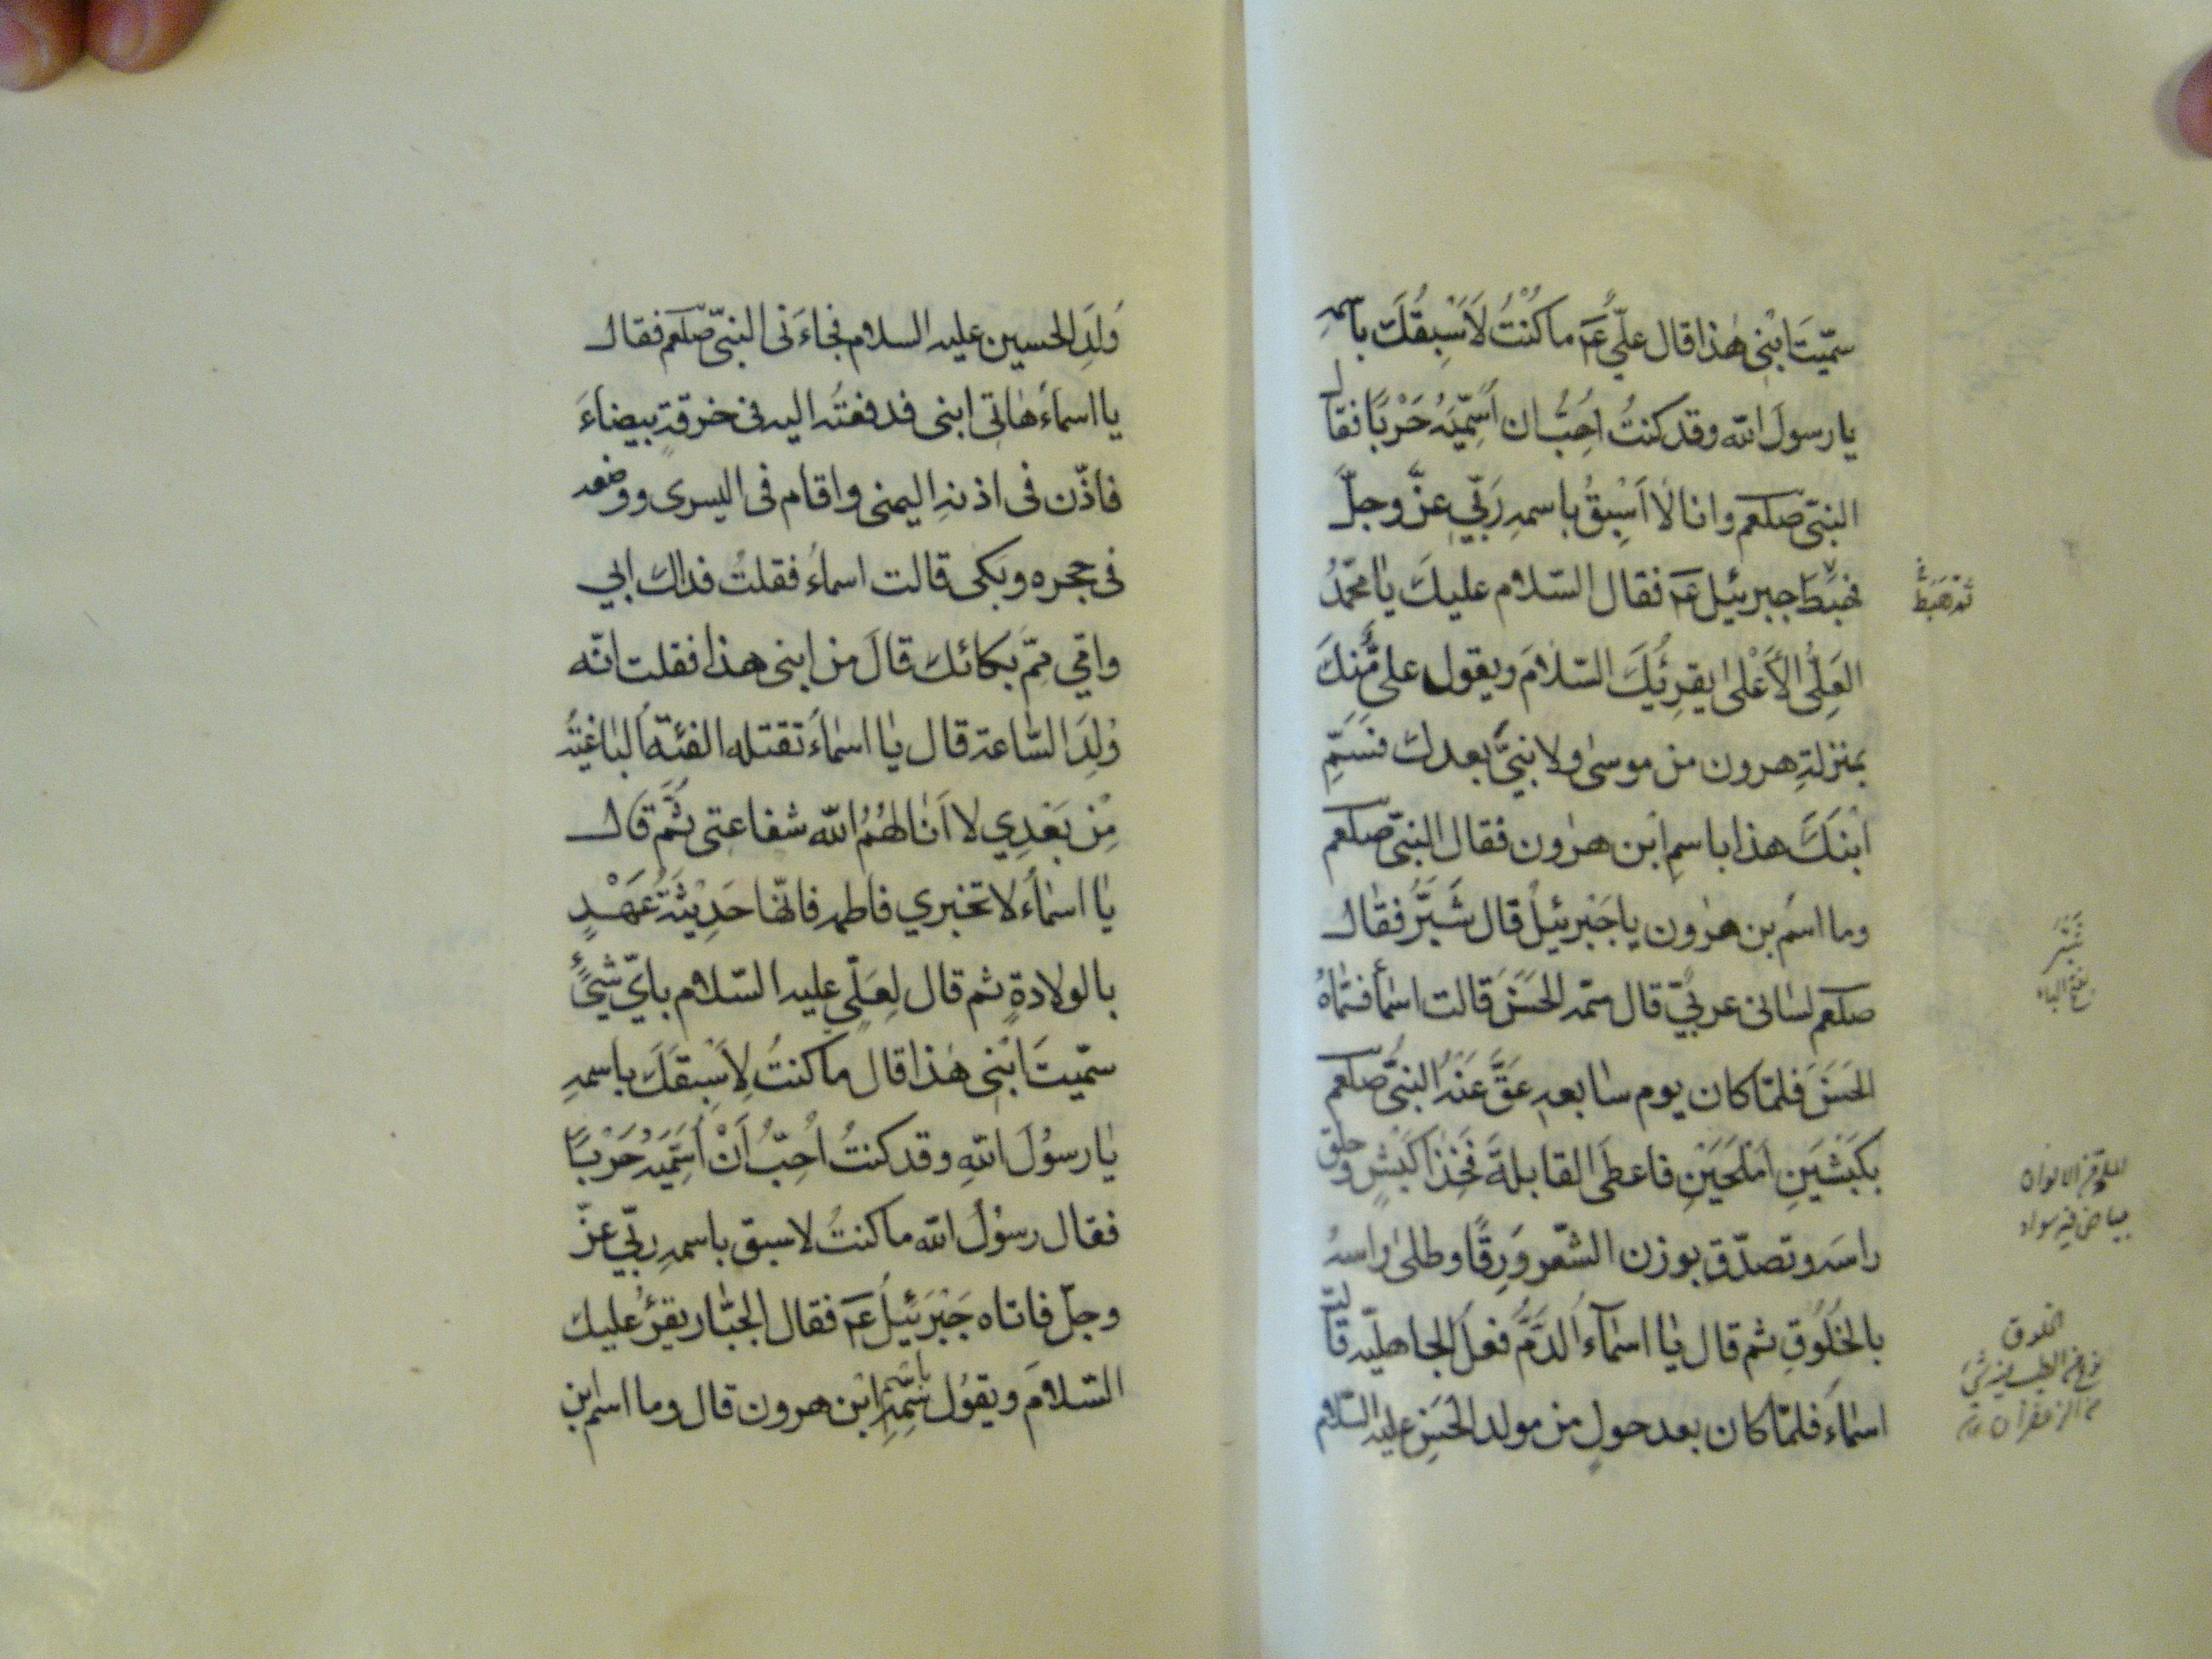 سمّيتَ ابْنِى هٰذا قال علىٌّ عم ما كُنْتُ لاَسْبِقُكَ باسمه
يا رسولَ الله وقد كنتُ اُحِبُّ ان اُسَمِّيَهُ حَرْبًا فقال
النبىّ صلعم وانا لا اَسْبِقُ باسمهِ رَبّي عزَّ وجلَّ
فهبط جبرئيل عم فقال السّلام عليكَ يا محمّدُ
العَلِىُّ الأَعْلىٰ يقرِئُكَ السّلامَ ويقول علىٌّ مِنكَ
بمنزلةِ هرون من موسىٰ ولا نبىَّ بعدك فسَمِّ
ابْنَكَ هذا باسمِ ابْن هرون فقال النبىّ صلعم
وما اسمُ بن هرون يا جَبْرئيلُ قال شَبَّرُ فقال
صلعم لسانى عربىّ قال سمّه الحَسَنَ قالت اسمأ فسمّاهُ
الحَسَنَ فلمّا كان يوم سابعه عَقَّ عَنْهُ النبىُّ صلعم
بكبْشَيْنِ اَمْلَحَيْنِ فاعطَى القابلةَ فَخِذَ كَبْشٍ وحلق
راسه وتصدّق بوزن الشّعر وَرِقًا وطلىٰ راسهُ
بالخَلُوقِ ثم قال يا اسمآء الدَّمُ فعلُ الجاهليّه قالت
اسمآءُ فلمّا كان بعد حولٍ من مولد الحَسَنِ عليه السّلام
ثم هَبَطَ
شَبَّر
بفتح الباء
بياض فيه سواد
الخلوق
وُلِدَ الحسين عليه السلام فجاءَنى النبىّ صلعم فقال
يا اسماءُ هاتى ابنى فدفعتُه اليه فى خرقةٍ بيضاءَ
فاذّن فى اذنهِ اليمنى واقام فى اليسرى ووضعه
فى حجره وبكى قالت اسماءُ فقلتُ فداك ابي
وامّي مِمّ بكائك قالَ من ابنى هذا فقلت انّه
وُلِدَ السّاعة قال يا اسماءُ تقتله الفئةُ الباغيةُ
مِنْ بَعْدِي لا اَنالهُمُ الله شفاعتى ثُمَّ قال
يا اسمأُ لا تخبري فاطمه فانّها حَدِيْثَةُ عَهْدٍ
بالولادةِ ثم قال لِعَلّىٍ عليه السّلام باىّ شىْءٍ
سمّيتَ ابْنِى هٰذا قال ما كنتُ لِاَسْبِقَكَ باسمهِ
يا رسُولَ اللهِ وقد كنتُ اُحِبُّ اَنْ اُسَمِّيَهُ حَرْبًا
فقال رسُولُ الله ما كنتُ لاسبق باسمهِ ربّي عزّ
وجلّ فاتاه جَبْرَئيلُ عم فقال الجبّار يقرُء عليك
السّلامَ ويقولُ سَمِّهِ باسم ابْن هرون قال وما اسم ابن